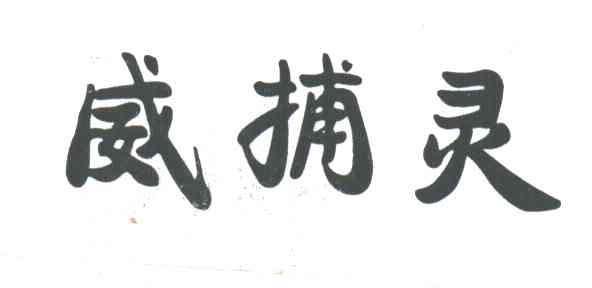 威捕灵